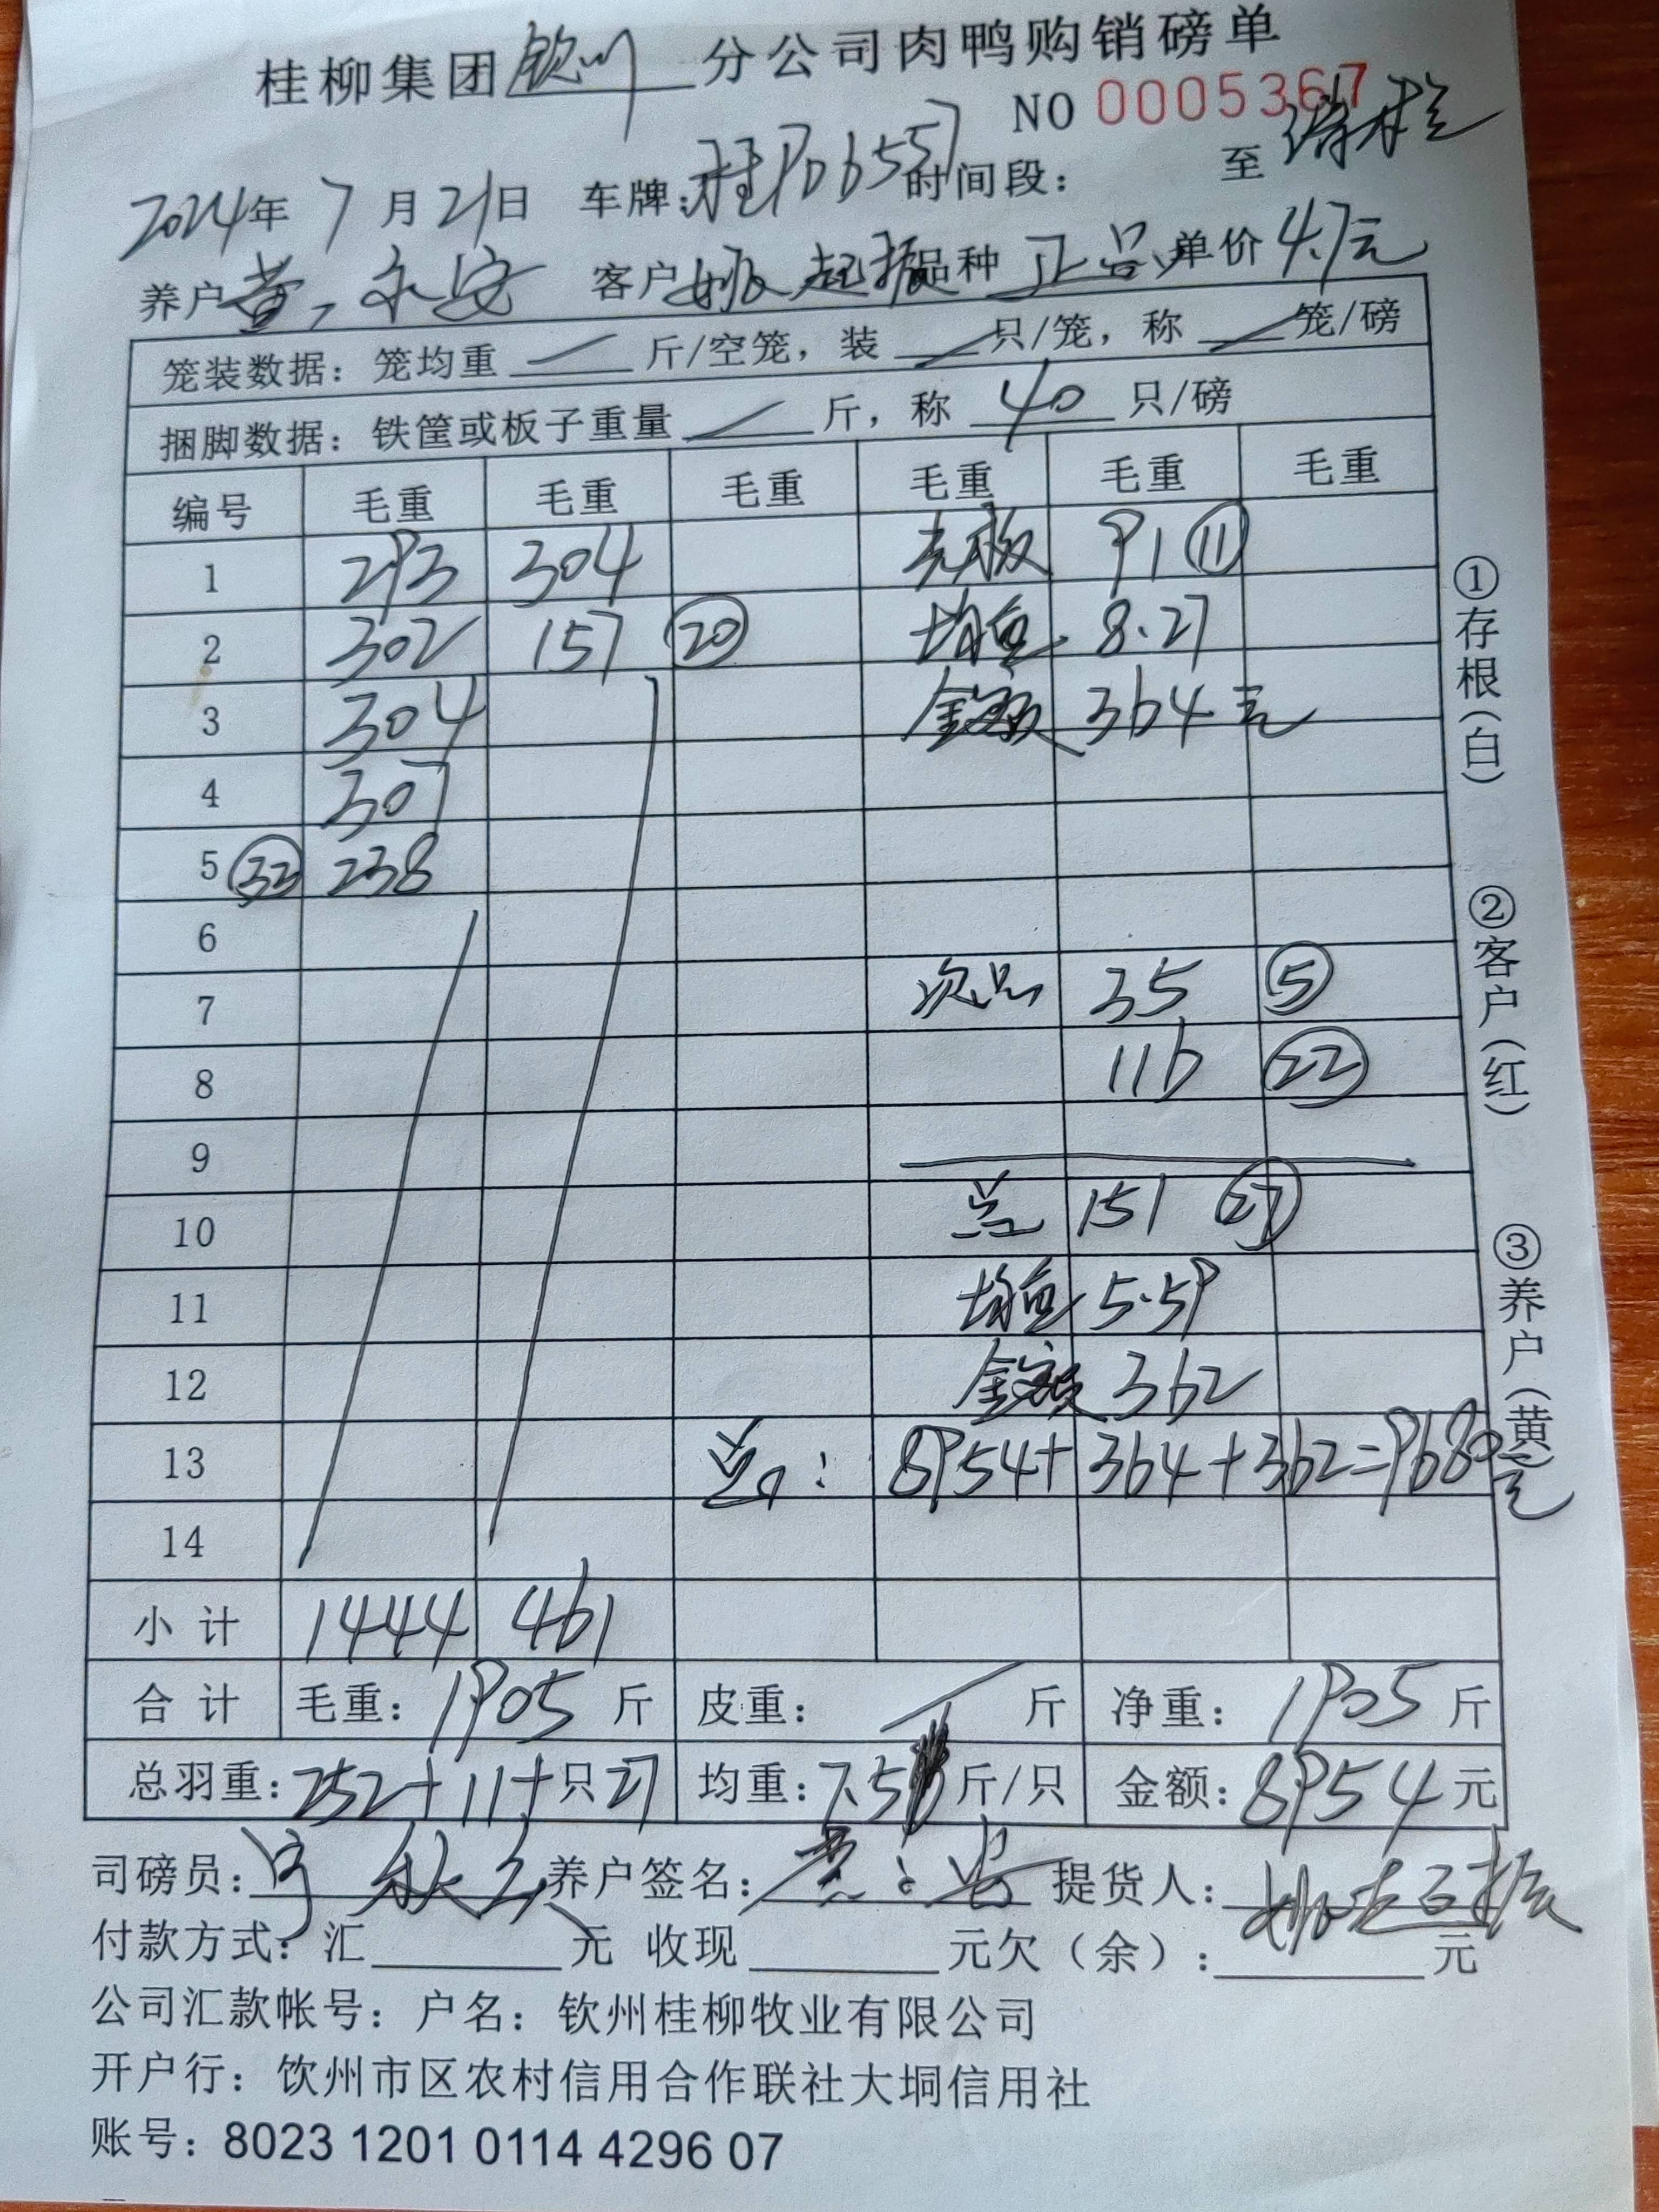 桂柳集团钦州分公司肉鸭购销磅单
NO 0005367
2024年 7 月 21日 车牌:桂PD6557 时间段: 至
养户 黄永安 客户 姚起振 品种 正品 单价 4.7元
笼装数据: 笼均重 / 斤/空笼, 装 / 只/笼, 称 / 笼/磅
捆脚数据: 铁筐或板子重量 / 斤, 称 40 只/磅
编号 毛重 毛重 毛重 毛重 毛重 毛重
1 293 304 光板 91 ⑪
2 302 157 ⑳ 均重 8.27
3 304 金额 364元
4 307
5 ㉝ 238
6
7 次品 35 ⑤
8 116 ㉒
9
10 总 151 ㉗
11 均重 5.59
12 金额 362
13 总: 8954+364+362=9680元
14
小计 1444 461
合计 毛重: 1905 斤 皮重: / 斤 净重: 1905 斤
总羽重: 252+11+只27 均重: 7.5 斤/只 金额: 8954 元
司磅员: 养户签名: 提货人: 姚起振
付款方式: 汇 元 收现 元欠(余): 元
公司汇款帐号: 户名: 钦州桂柳牧业有限公司
开户行: 钦州市区农村信用合作联社大垌信用社
账号: 8023 1201 0114 4296 07
①存根(白)
②客户(红)
③养户(黄)